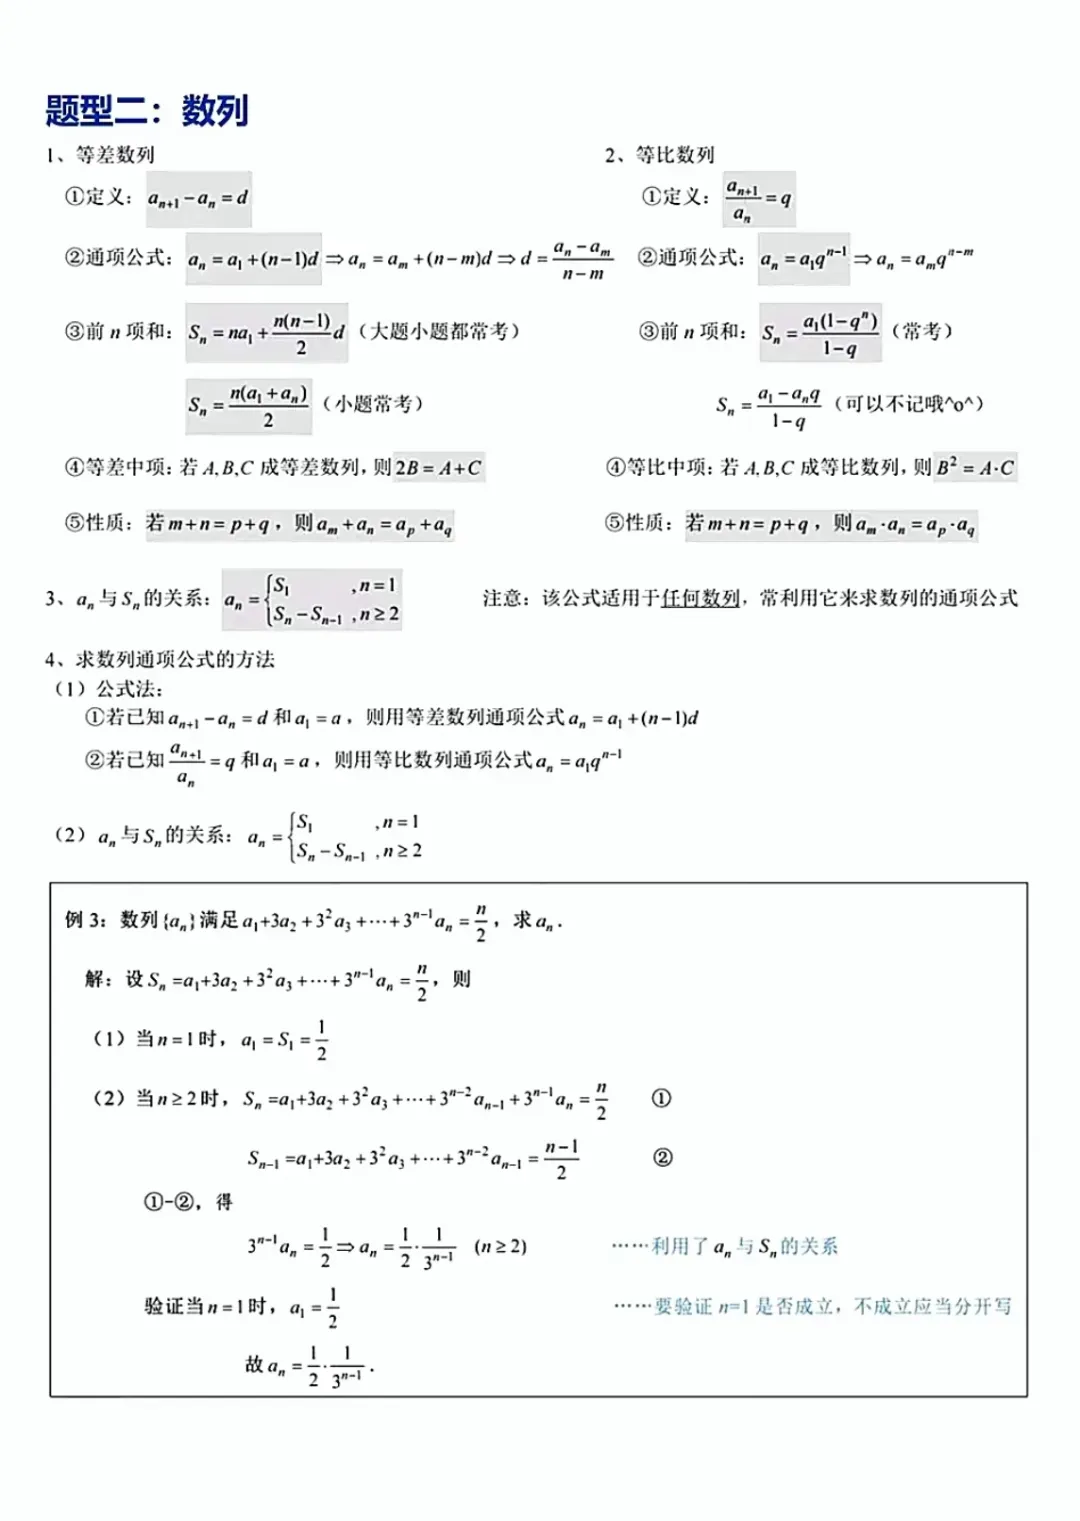 题型二：数列
1、等差数列
①定义：a_{n+1}-a_n=d
②通项公式：a_n=a_1+(n-1)d⇒a_n=a_m+(n-m)d⇒d=\frac{a_n-a_m}{n-m}
③前 n 项和：S_n=na_1+\frac{n(n-1)}{2}d（大题小题都常考）
S_n=\frac{n(a_1+a_n)}{2}（小题常考）
④等差中项：若 A,B,C 成等差数列，则2B=A+C
⑤性质：若m+n=p+q，则a_m+a_n=a_p+a_q
2、等比数列
①定义：\frac{a_{n+1}}{a_n}=q
②通项公式：a_n=a_1q^{n-1}⇒a_n=a_mq^{n-m}
③前 n 项和：S_n=\frac{a_1(1-q^n)}{1-q}（常考）
S_n=\frac{a_1-a_nq}{1-q}（可以不记哦^o^）
④等比中项：若 A,B,C 成等比数列，则B^2=A·C
⑤性质：若m+n=p+q，则a_m·a_n=a_p·a_q
3、a_n与S_n的关系：a_n=\begin{cases}S_1,n=1\\S_n-S_{n-1},n≥2\end{cases} 注意：该公式适用于任何数列，常利用它来求数列的通项公式
4、求数列通项公式的方法
（1）公式法：
①若已知a_{n+1}-a_n=d和a_1=a，则用等差数列通项公式a_n=a_1+(n-1)d
②若已知\frac{a_{n+1}}{a_n}=q和a_1=a，则用等比数列通项公式a_n=a_1q^{n-1}
（2）a_n与S_n的关系：a_n=\begin{cases}S_1,n=1\\S_n-S_{n-1},n≥2\end{cases}
例 3：数列{a_n}满足a_1+3a_2+3^2a_3+⋯+3^{n-1}a_n=\frac{n}{2}，求a_n.
解：设S_n=a_1+3a_2+3^2a_3+⋯+3^{n-1}a_n=\frac{n}{2}，则
（1）当n=1时，a_1=S_1=\frac{1}{2}
（2）当n≥2时，S_n=a_1+3a_2+3^2a_3+⋯+3^{n-2}a_{n-1}+3^{n-1}a_n=\frac{n}{2} ①
S_{n-1}=a_1+3a_2+3^2a_3+⋯+3^{n-2}a_{n-1}=\frac{n-1}{2} ②
①-②，得
3^{n-1}a_n=\frac{1}{2}⇒a_n=\frac{1}{2}·\frac{1}{3^{n-1}} (n≥2) ……利用了a_n与S_n的关系
验证当n=1时，a_1=\frac{1}{2} ……要验证 n=1 是否成立，不成立应当分开写
故a_n=\frac{1}{2}·\frac{1}{3^{n-1}}.